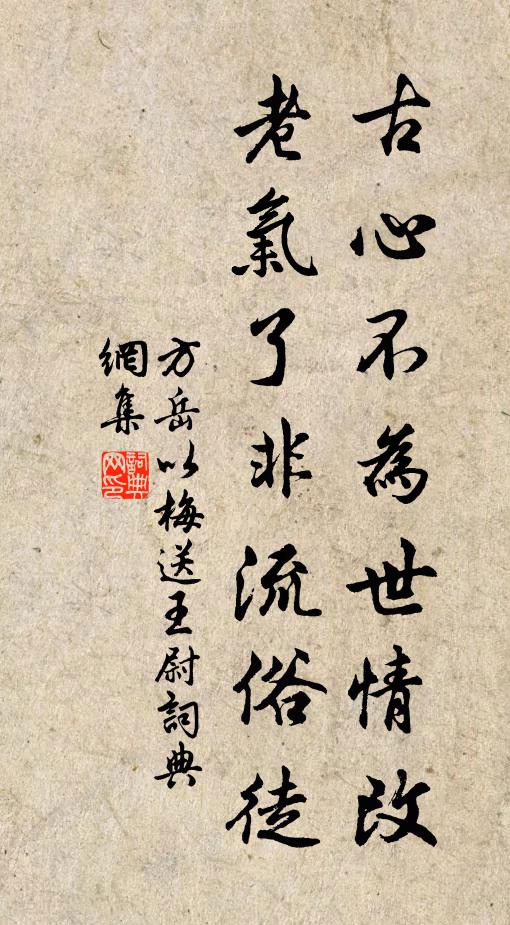 古心不為世情改
老氣了非流俗徒
方岳以梅送王尉詞典
網集
詞典
網印